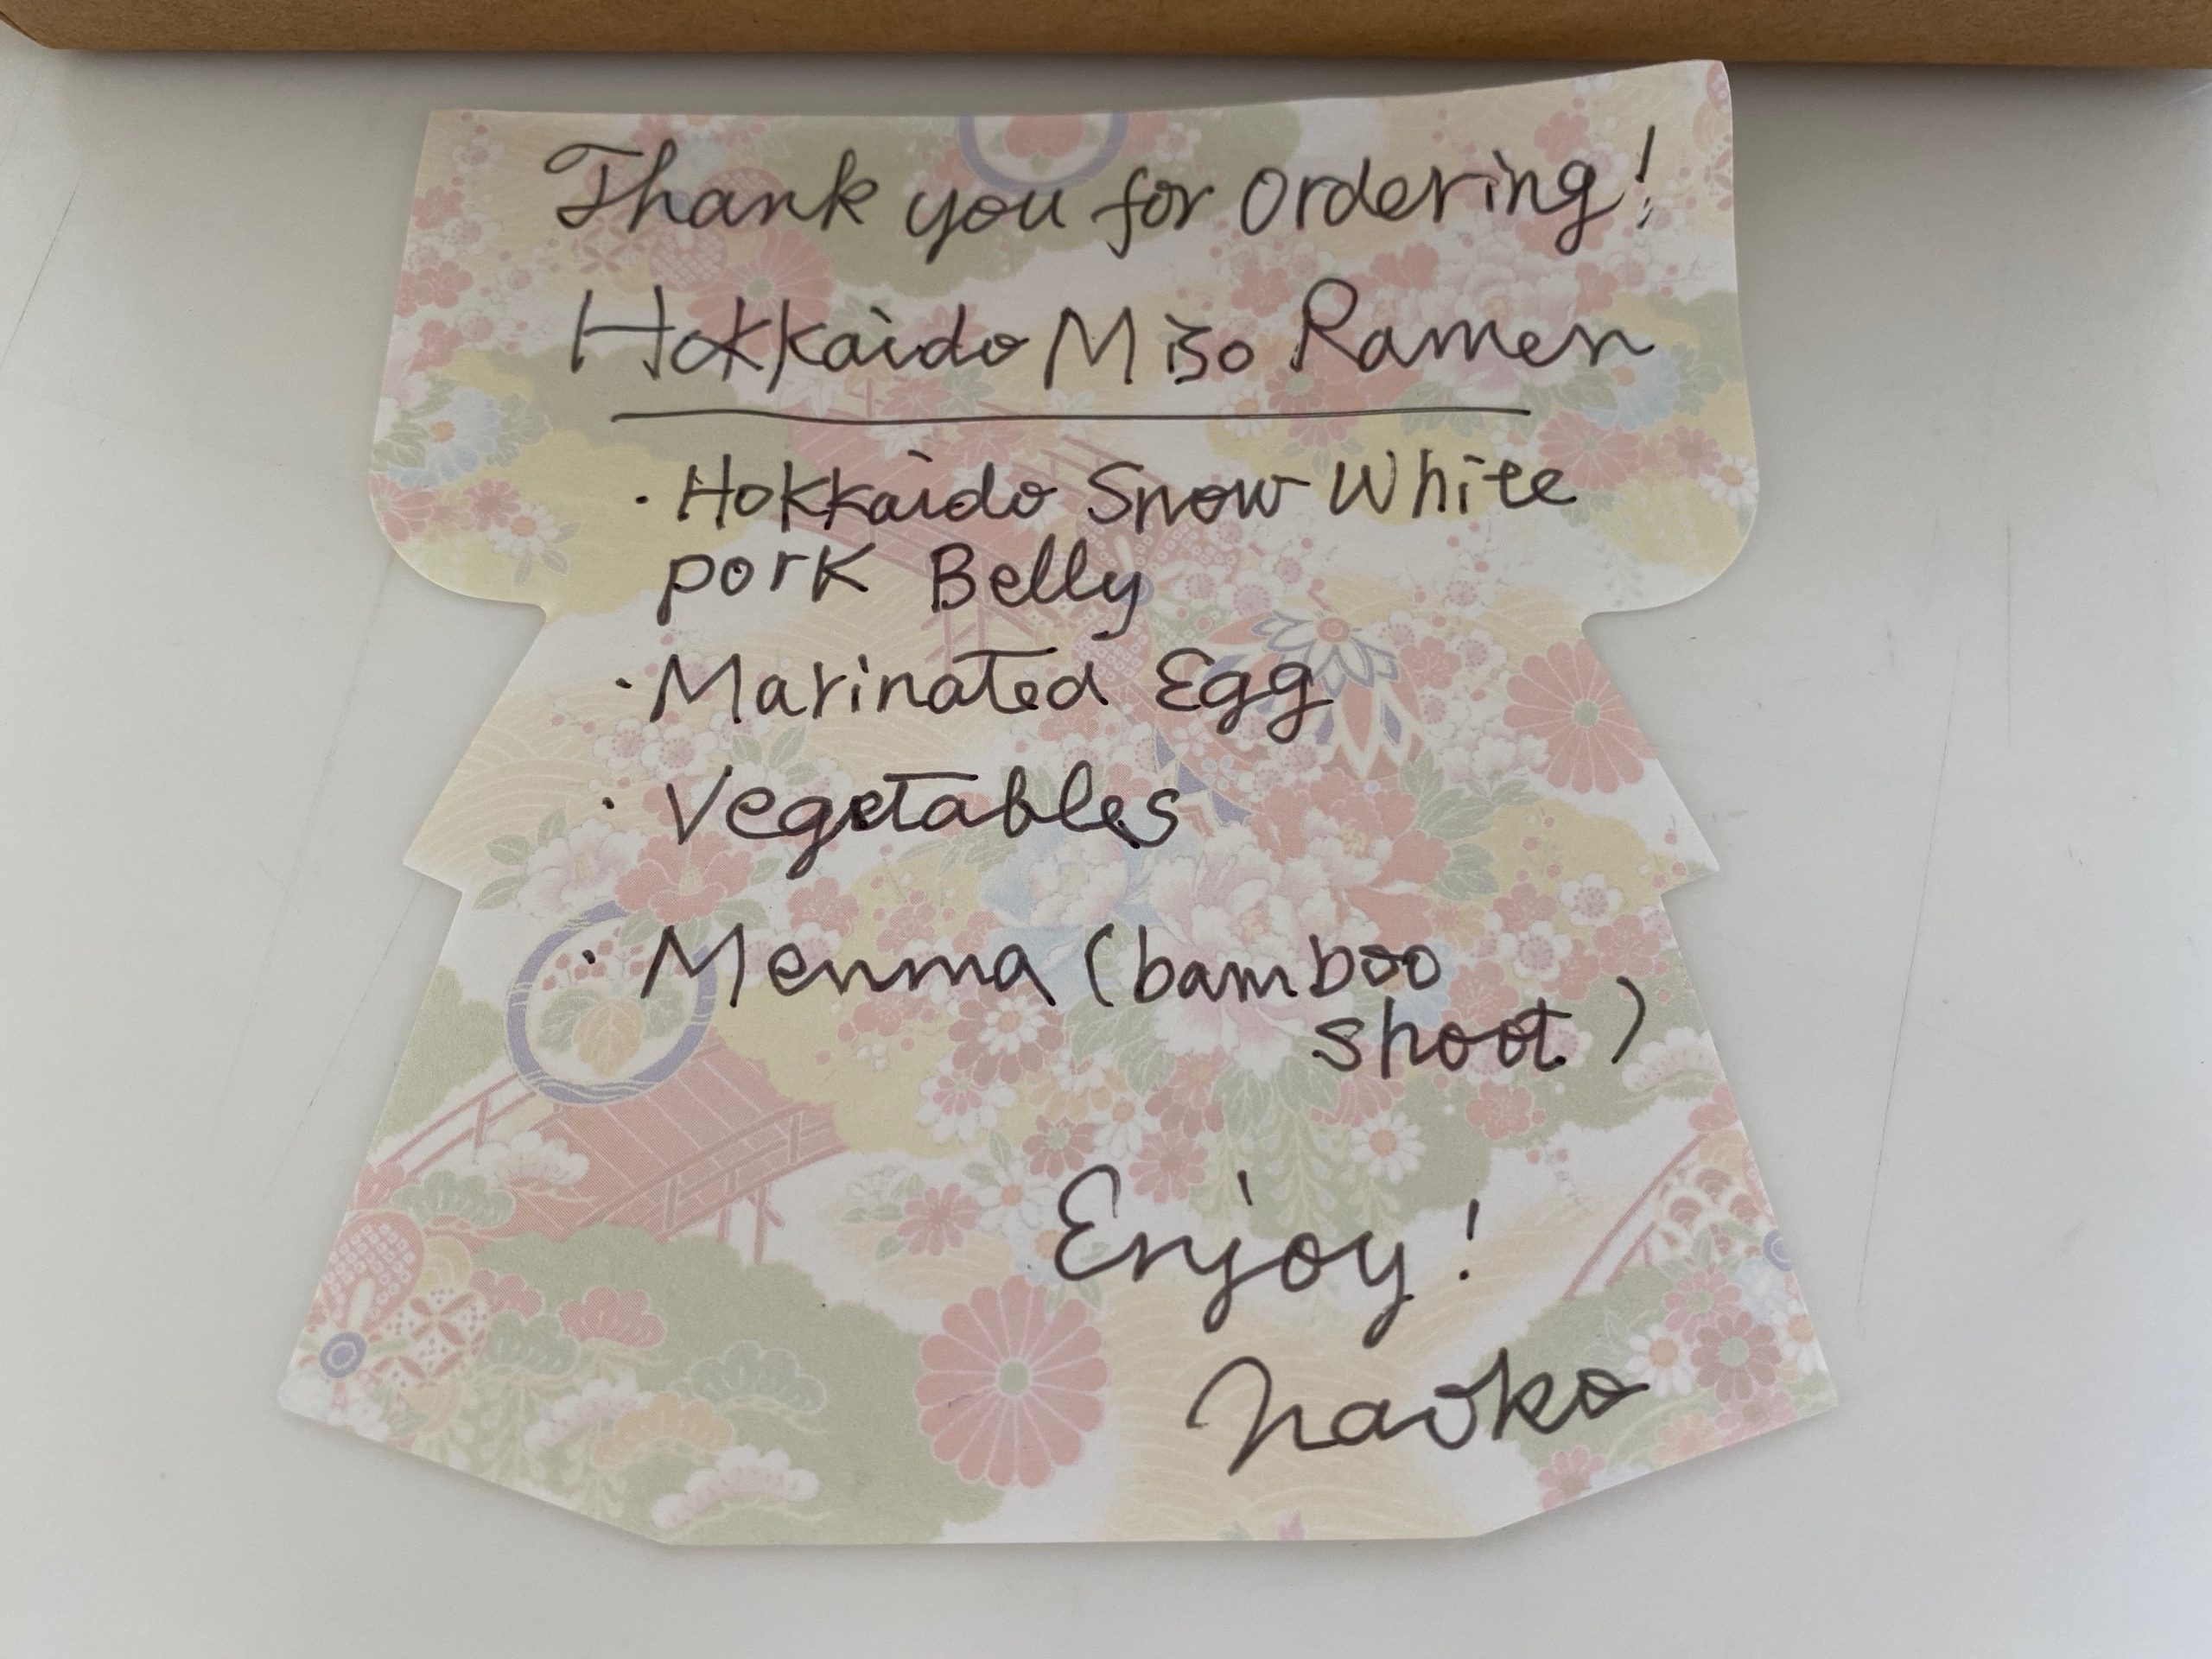 Thank you for ordering!
Hokkaido Miso Ramen
· Hokkaido Snow White
pork Belly
· Marinated Egg
· Vegetables
· Menma (bamboo
shoot)
Enjoy!
Naoko